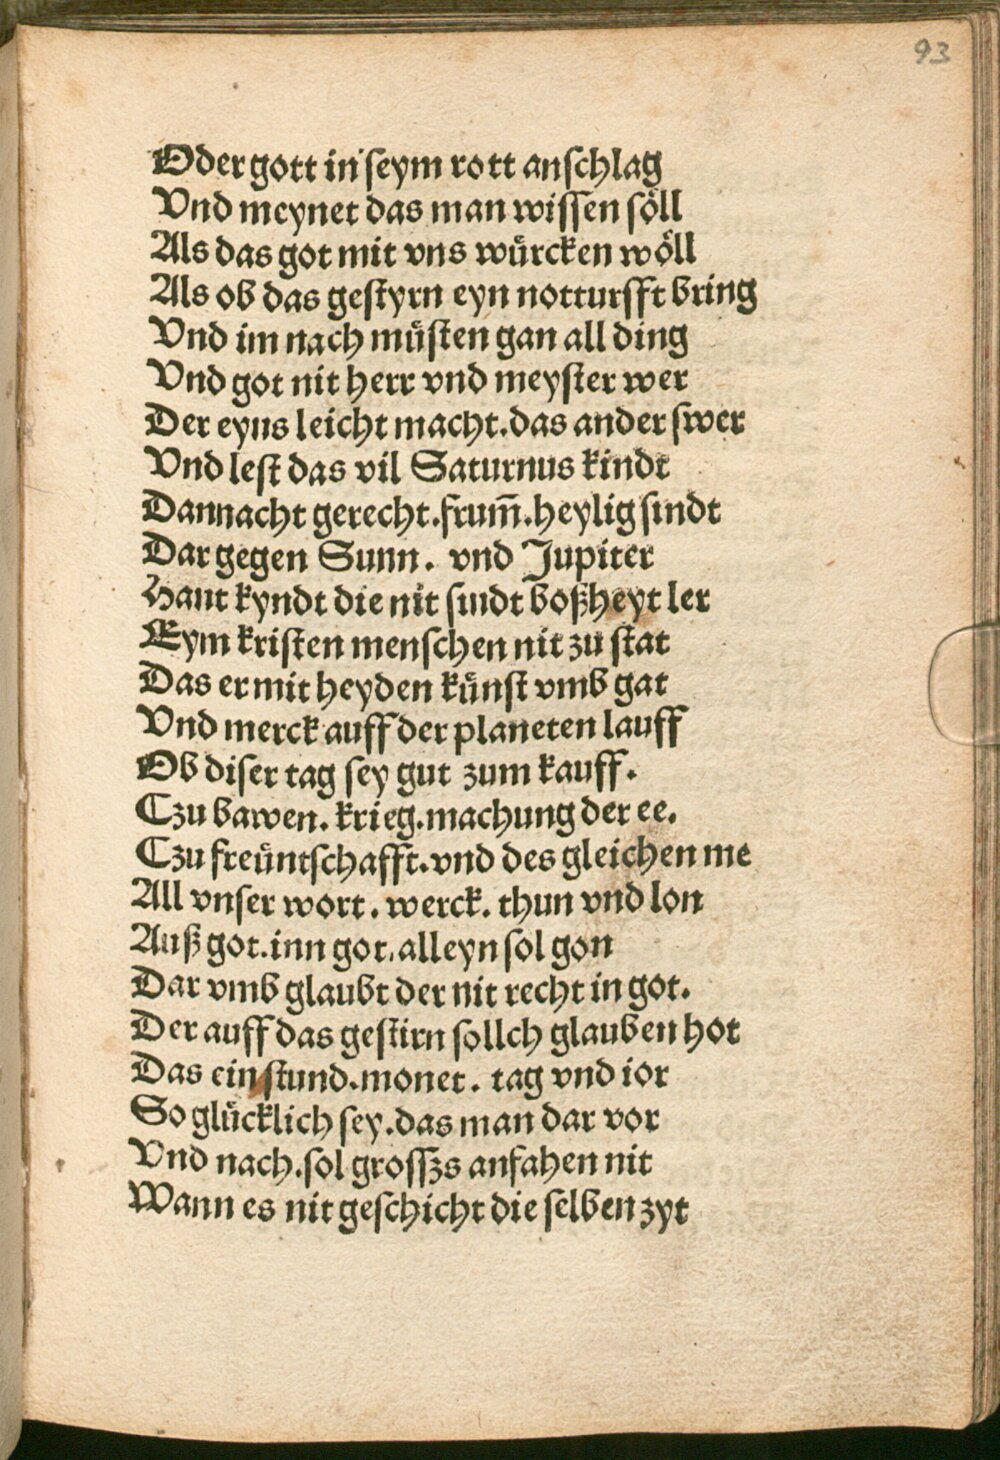 93
Oder gott in seym rott anschlag
Vnd meynet das man wissen söll
Als das got mit vns würcken wöll
Als ob das gestyrn eyn notturfft bring
Vnd im nach müsten gan all ding
Vnd got nit herr vnd meyster wer
Der eyns leicht macht.das ander swer
Vnd lest das vil Saturnus kindt
Dannacht gerecht.frum̄.heylig sindt
Dar gegen Sunn. vnd Jupiter
Hant kyndt die nit sindt boßheyt ler
Eym kristen menschen nit zu stat
Das er mit heyden künst vmb gat
Vnd merck auff der planeten lauff
Ob diser tag sey gut zum kauff.
Czu bawen. krieg.machung der ee.
Czu freüntschafft.vnd des gleichen me
All vnser wort. werck. thun vnd lon
Auß got.inn got.alleyn sol gon
Dar vmb glaubt der nit recht in got.
Der auff das gestirn sollch glauben hot
Das ein stund.monet. tag vnd ior
So glücklich sey.das man dar vor
Vnd nach.sol grosszs anfahen nit
Wann es nit geschicht die selben zyt